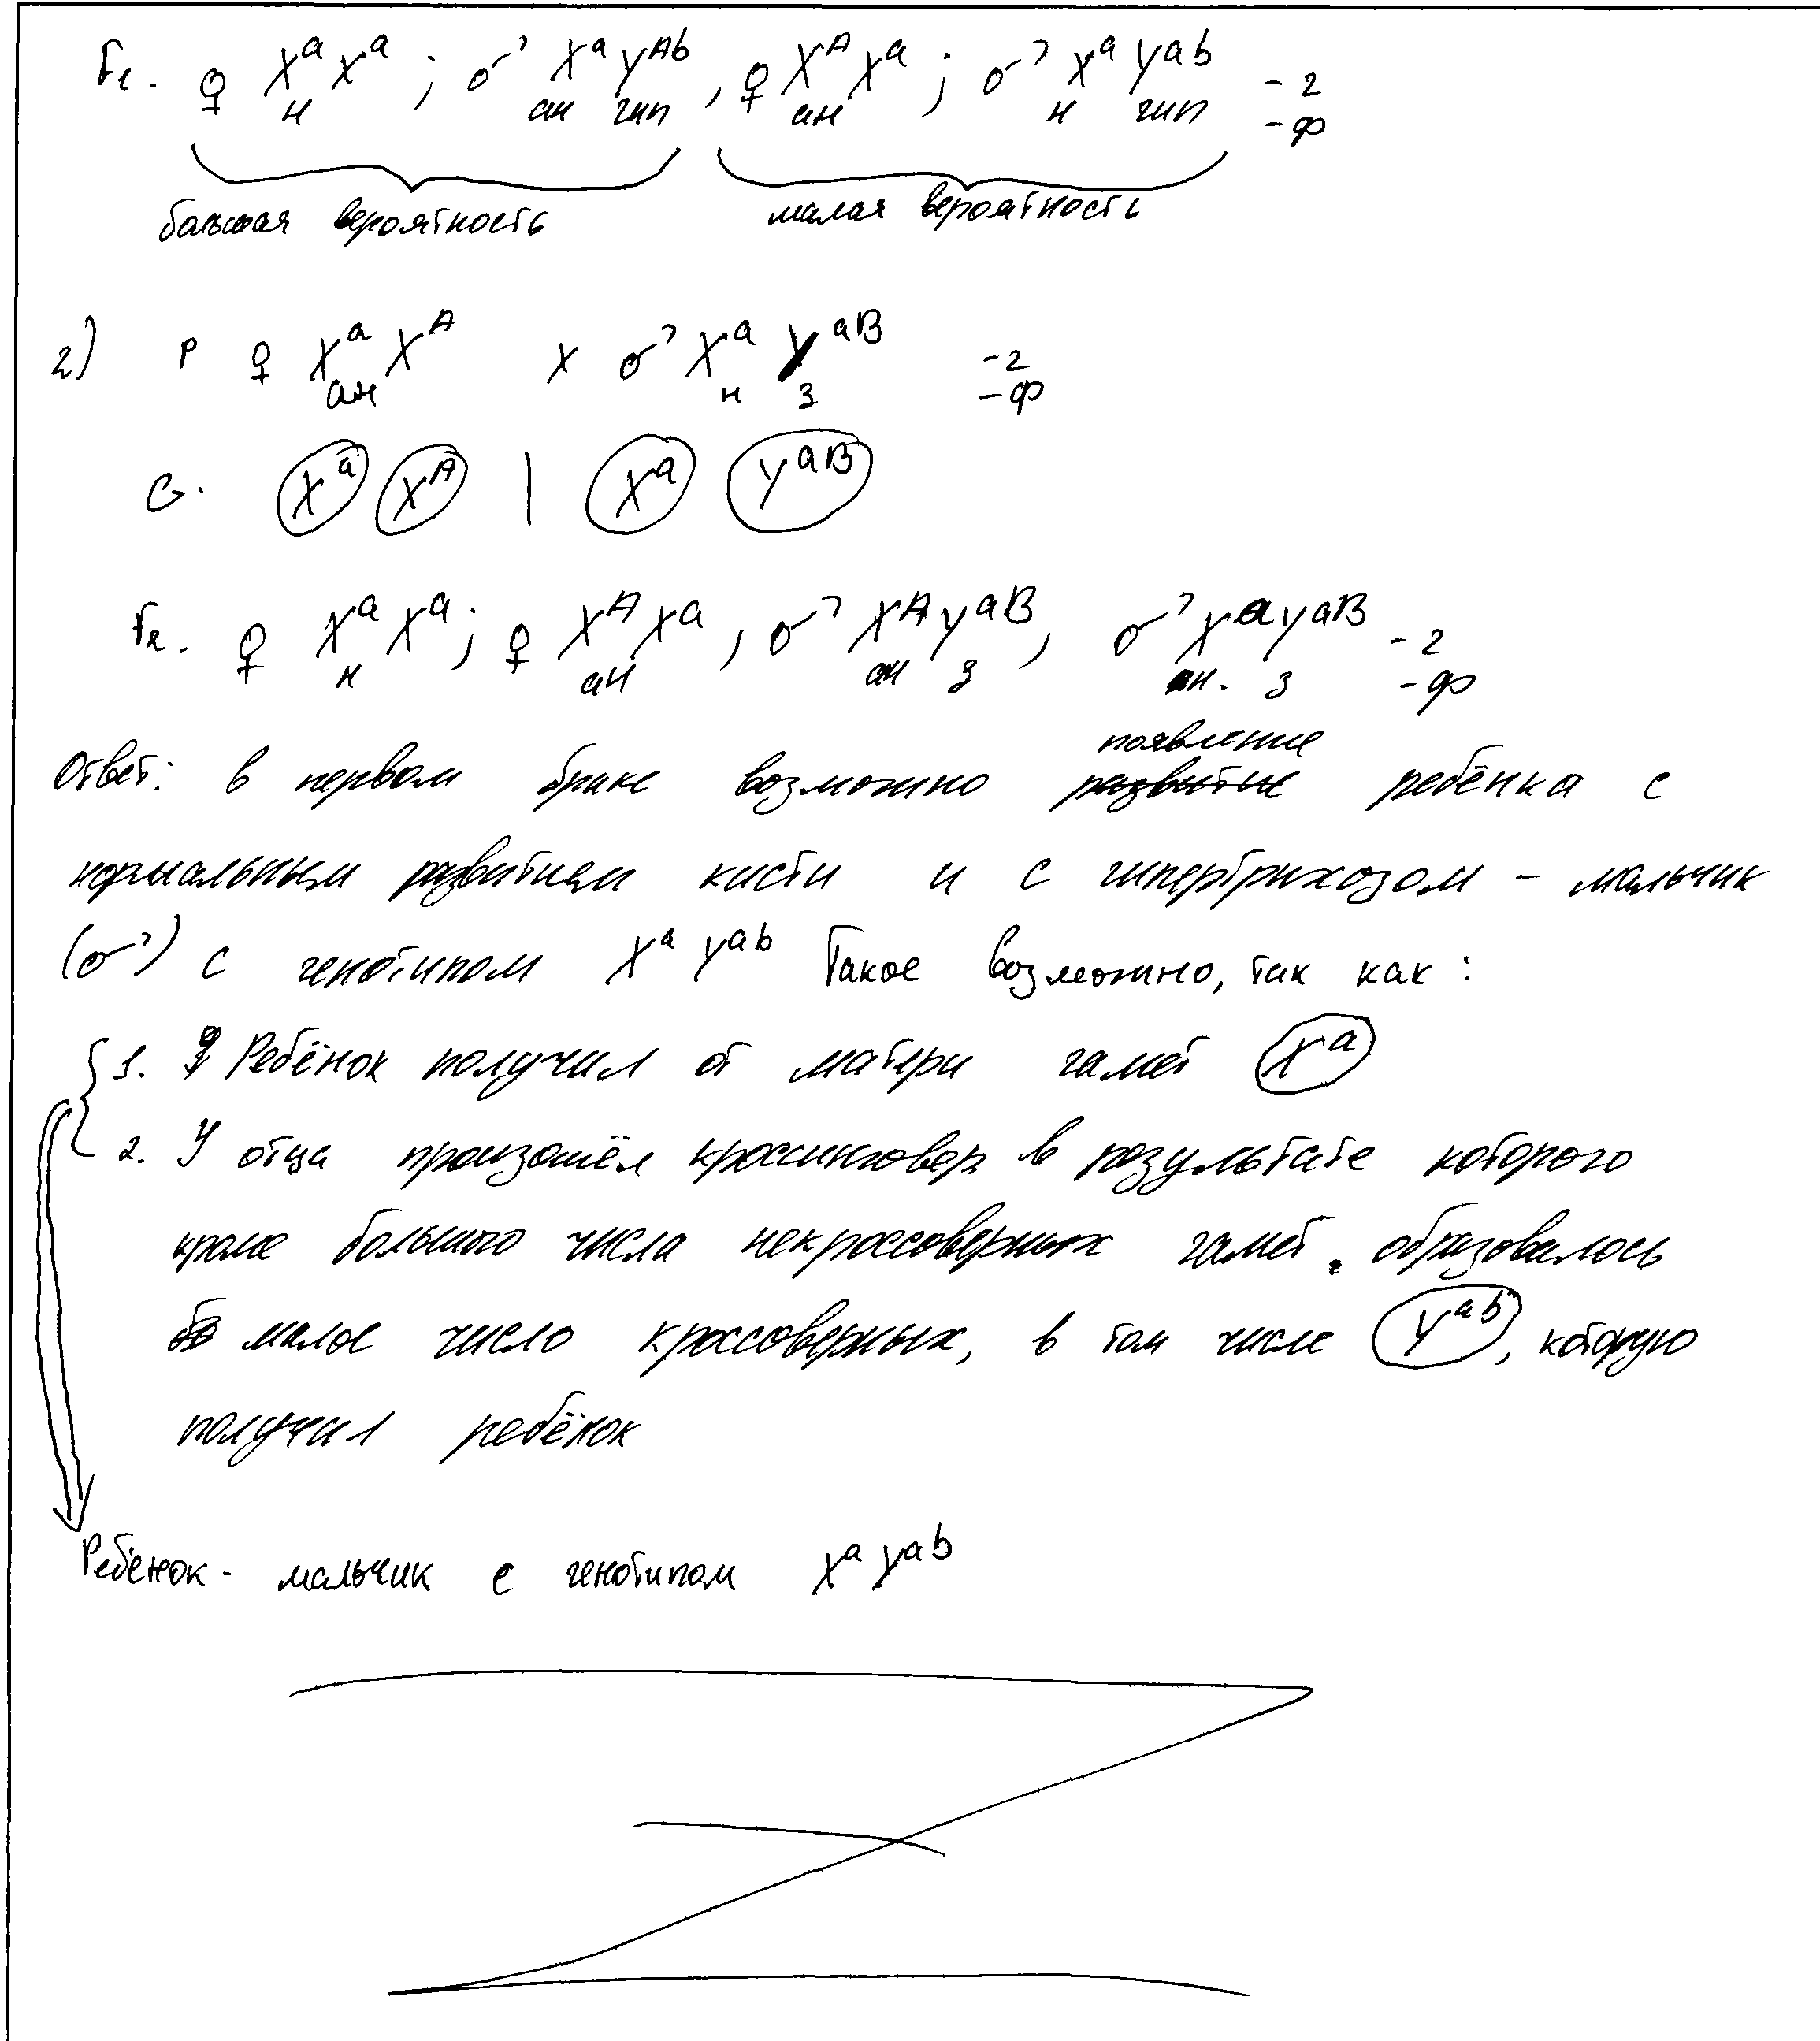 F₁. ♀ Xᵃ Xᵃ ; ♂ Xᵃ Yᴬᵇ , ♀ Xᴬ Xᵃ ; ♂ Xᵃ Yᵃᵇ - г
н ан гип ан н гип - ф
большая вероятность малая вероятность
2) P ♀ Xᵃ Xᴬ x ♂ Xᵃ Yᵃᴮ - г
ан н з - ф
G. Xᵃ Xᴬ | Xᵃ Yᵃᴮ
F₂. ♀ Xᵃ Xᵃ ; ♀ Xᴬ Xᵃ , ♂ Xᴬ Yᵃᴮ , ♂ Xᵃ Yᵃᴮ - г
н ан ан з н. з - ф
появление
Ответ: в первом браке возможно развитие ребёнка с
нормальным развитием кисти и с гипертрихозом – мальчик
(♂) с генотипом Xᵃ Yᵃᵇ Такое возможно, так как :
1. Ребёнок получил от матери гамет Xᵃ
2. У отца произошёл кроссинговер в результате которого
кроме большого числа некроссоверных гамет образовалось
малое число кроссоверных, в том числе Yᵃᵇ, которую
получил ребёнок
Ребёнок - мальчик с генотипом Xᵃ Yᵃᵇ